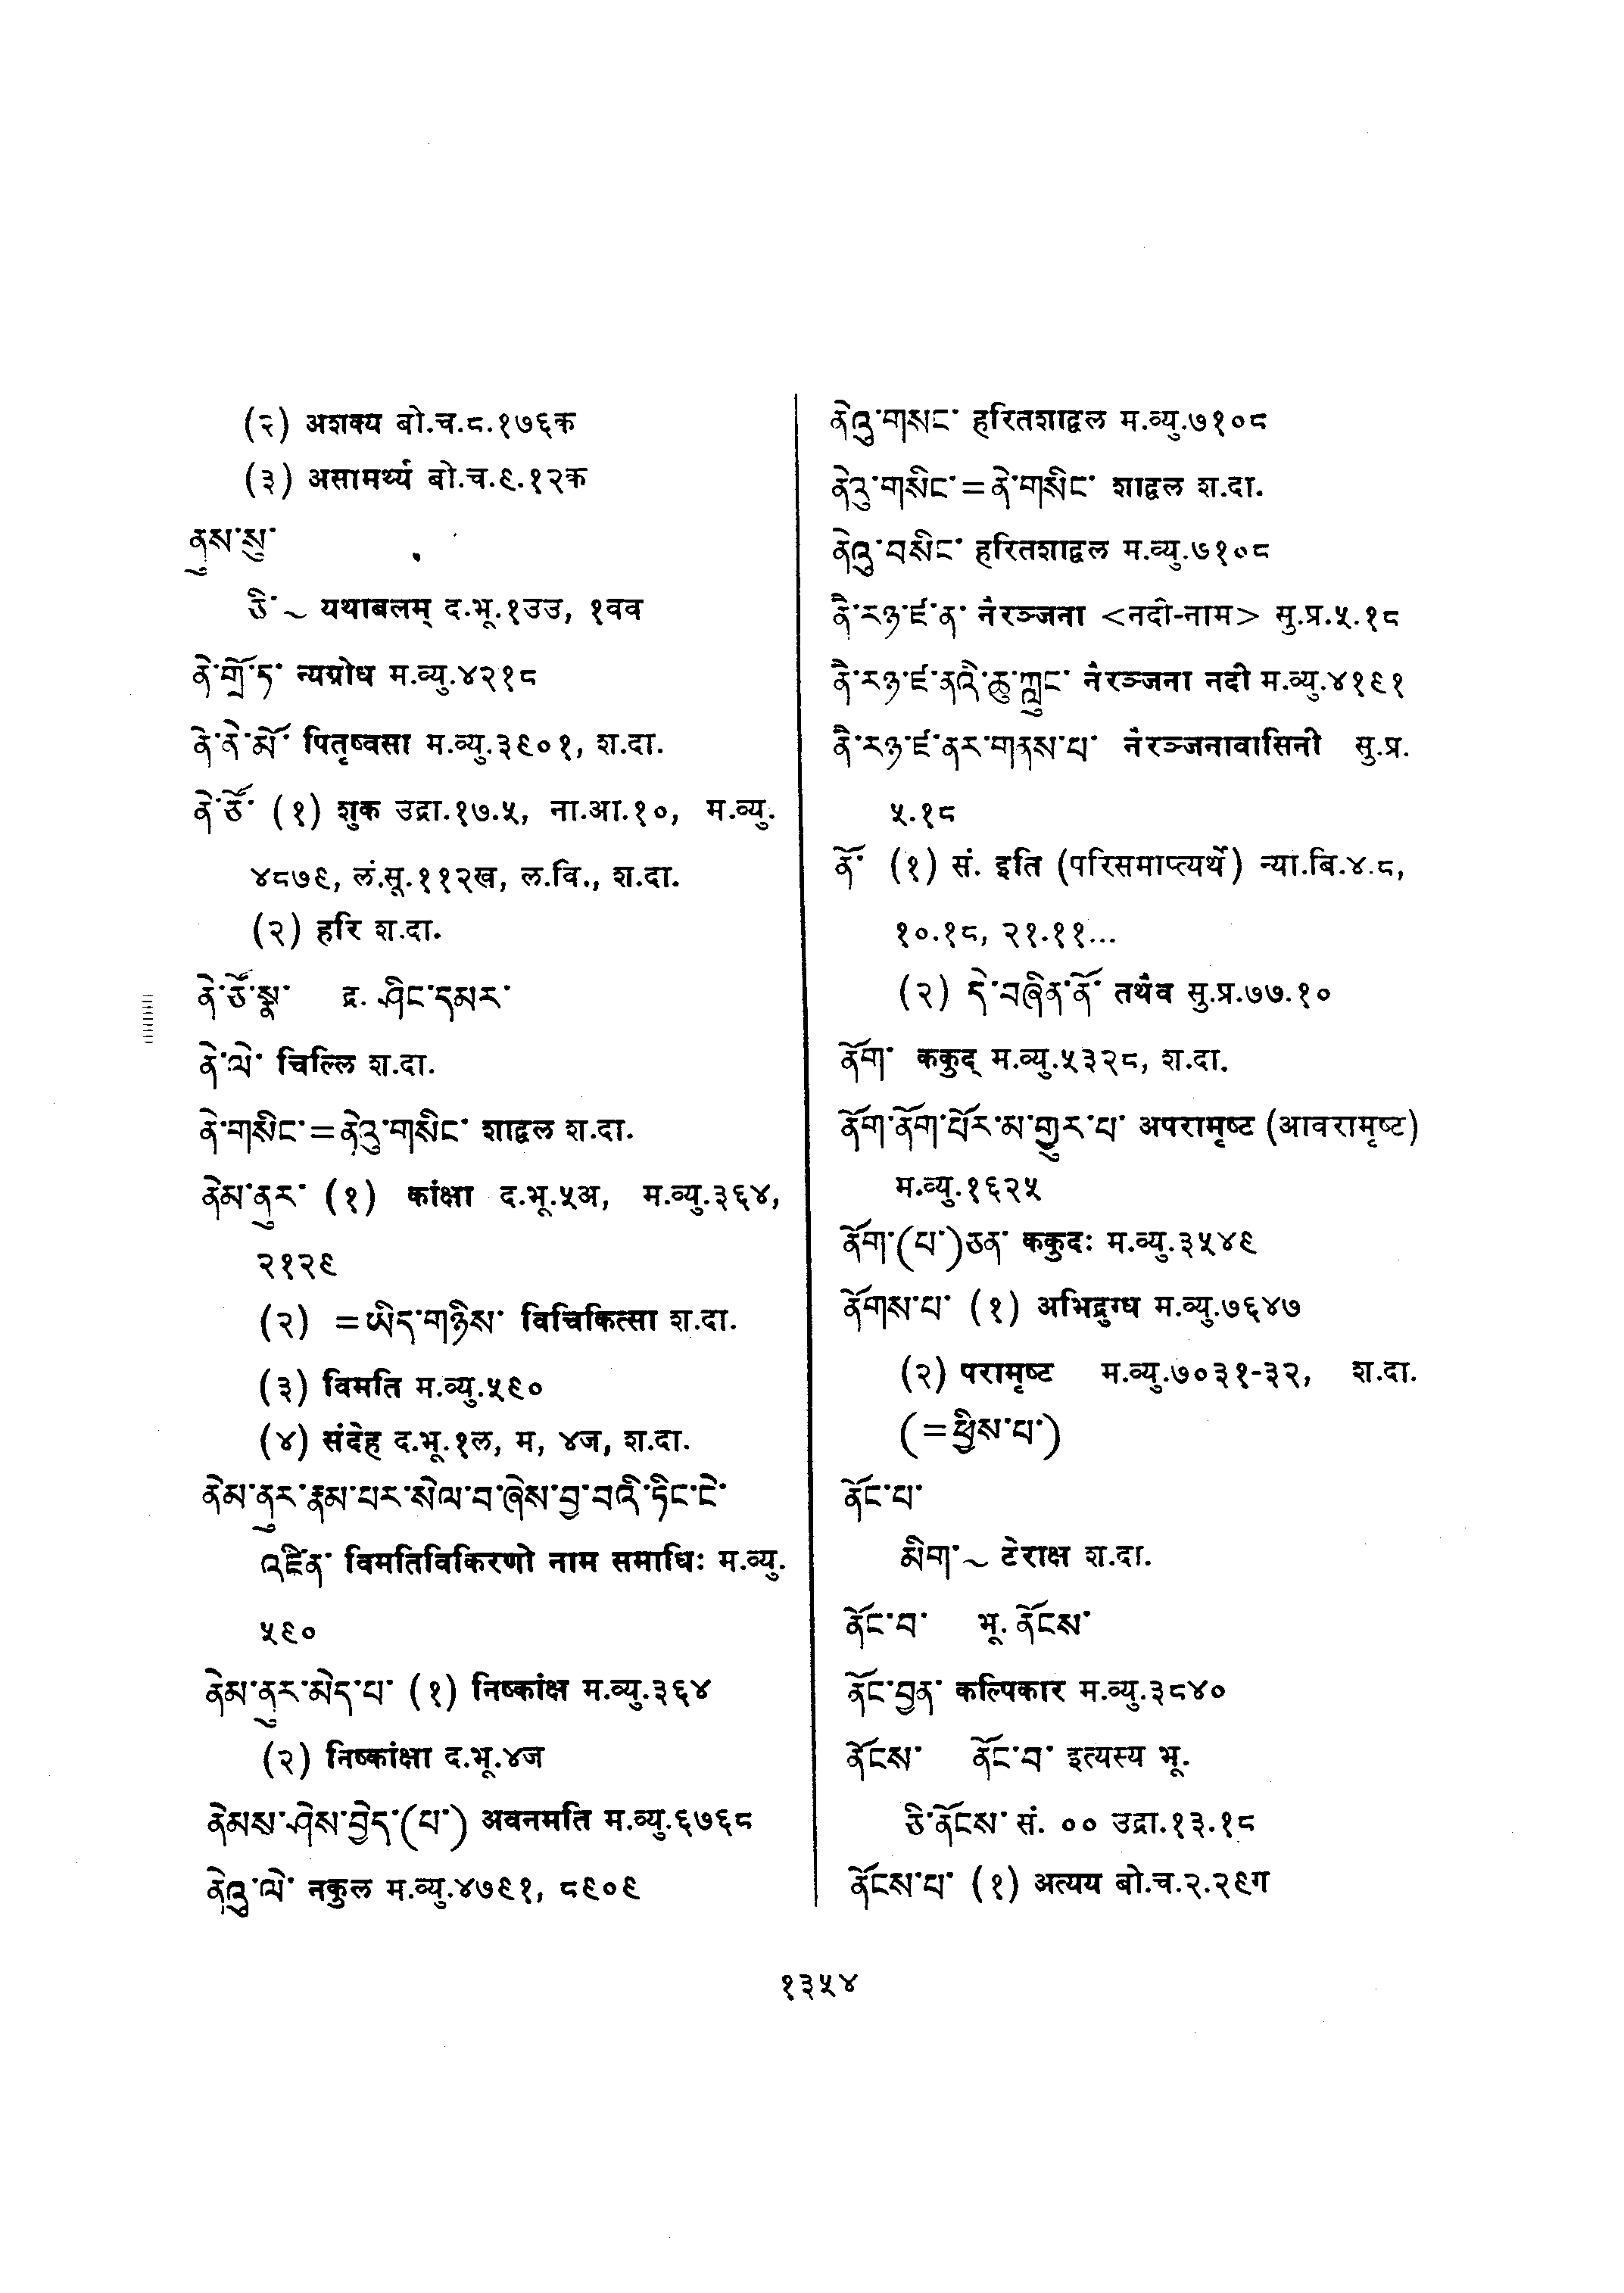 (२) अशक्य बो.च.८.१७६क
(३) असामर्थ्य बो.च.९.१२क
ནུས་སུ་
ཅི་ ~ यथाबलम् द.भू.१उउ, १वव
ནེ་གྲོ་ད་ न्यग्रोध म.व्यु.४२१८
ནེ་ནེ་མོ་ पितृष्वसा म.व्यु.३९०१, श.दा.
ནེ་ཙོ་ (१) शुक उद्रा.१७.५, ना.आ.१०, म.व्यु.
४८७९, लं.सू.११२ख, ल.वि., श.दा.
(२) हरि श.दा.
ནེ་ཙོ་སྣ་ द्र. ཤིང་དམར་
ནེ་ལེ་ चिल्लि श.दा.
ནེ་གསིང་ = ནེའུ་གསིང་ शाद्वल श.दा.
ནེམ་ནུར་ (१) कांक्षा द.भू.५अ, म.व्यु.३६४,
२१२९
(२) = ཡིད་གཉིས་ विचिकित्सा श.दा.
(३) विमति म.व्यु.५९०
(४) संदेह द.भू.१ल, म, ४ज, श.दा.
ནེམ་ནུར་རྣམ་པར་སེལ་བ་ཞེས་བྱ་བའི་ཏིང་ངེ་
འཛིན་ विमतिविकिरणो नाम समाधिः म.व्यु.
५९०
ནེམ་ནུར་མེད་པ་ (१) निष्कांक्ष म.व्यु.३६४
(२) निष्कांक्षा द.भू.४ज
ནེམས་ཤེས་བྱེད་(པ་) अवनमति म.व्यु.६७६८
ནེའུ་ལེ་ नकुल म.व्यु.४७९१, ८९०९
ནེའུ་གསང་ हरितशाद्वल म.व्यु.७१०८
ནེའུ་གསིང་ = ནེ་གསིང་ शाद्वल श.दा.
ནེའུ་བསིང་ हरितशाद्वल म.व्यु.७१०८
ནཻ་རཉ་ཛ་ན་ नैरञ्जना <नदी-नाम> सु.प्र.५.१८
ནཻ་རཉ་ཛ་ནའི་ཆུ་ཀླུང་ नैरञ्जना नदी म.व्यु.४१९१
ནཻ་རཉ་ཛ་ནར་གནས་པ་ नैरञ्जनावासिनी सु.प्र.
५.१८
ནོ་ (१) सं. इति (परिसमाप्त्यर्थे) न्या.बि.४.८,
१०.१८, २१.११...
(२) དེ་བཞིན་ནོ་ तथैव सु.प्र.७७.१०
ནོག་ ककुद् म.व्यु.५३२८, श.दा.
ནོག་ནོག་པོར་མ་གྱུར་པ་ अपरामृष्ट (आवरामृष्ट)
म.व्यु.१६२५
ནོག་(པ་)ཅན་ ककुदः म.व्यु.३५४९
ནོགས་པ་ (१) अभिद्रुग्ध म.व्यु.७६४७
(२) परामृष्ट म.व्यु.७०३१-३२, श.दा.
(= ཕྱིས་པ་)
ནོང་པ་
མིག་ ~ टेराक्ष श.दा.
ནོང་བ་ भू. ནོངས་
ནོང་བྱན་ कल्पिकार म.व्यु.३८४०
ནོངས་ ནོང་བ་ इत्यस्य भू.
ཅི་ནོངས་ सं. ०० उद्रा.१३.१८
ནོངས་པ་ (१) अत्यय बो.च.२.२९ग
१३५४